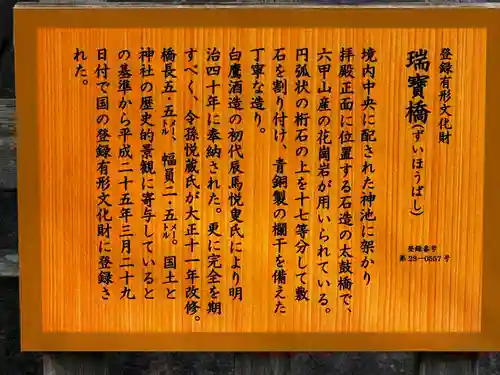 登録有形文化財
瑞寶橋(ずいほうばし)
登録番号
第28-0557号
境内中央に配された神池に架かり
拝殿正面に位置する石造の太鼓橋で、
六甲山産の花崗岩が用いられている。
円弧状の桁石の上を十七等分して敷
石を割り付け、青銅製の欄干を備えた
丁寧な造り。
白鷹酒造の初代辰馬悦叟氏により明
治四十年に奉納された。更に完全を期
すべく、令孫悦蔵氏が大正十一年改修。
橋長五・五㍍、幅員二・五㍍。国土と
神社の歴史的景観に寄与していると
の基準から平成二十五年三月二十九
日付で国の登録有形文化財に登録さ
れた。